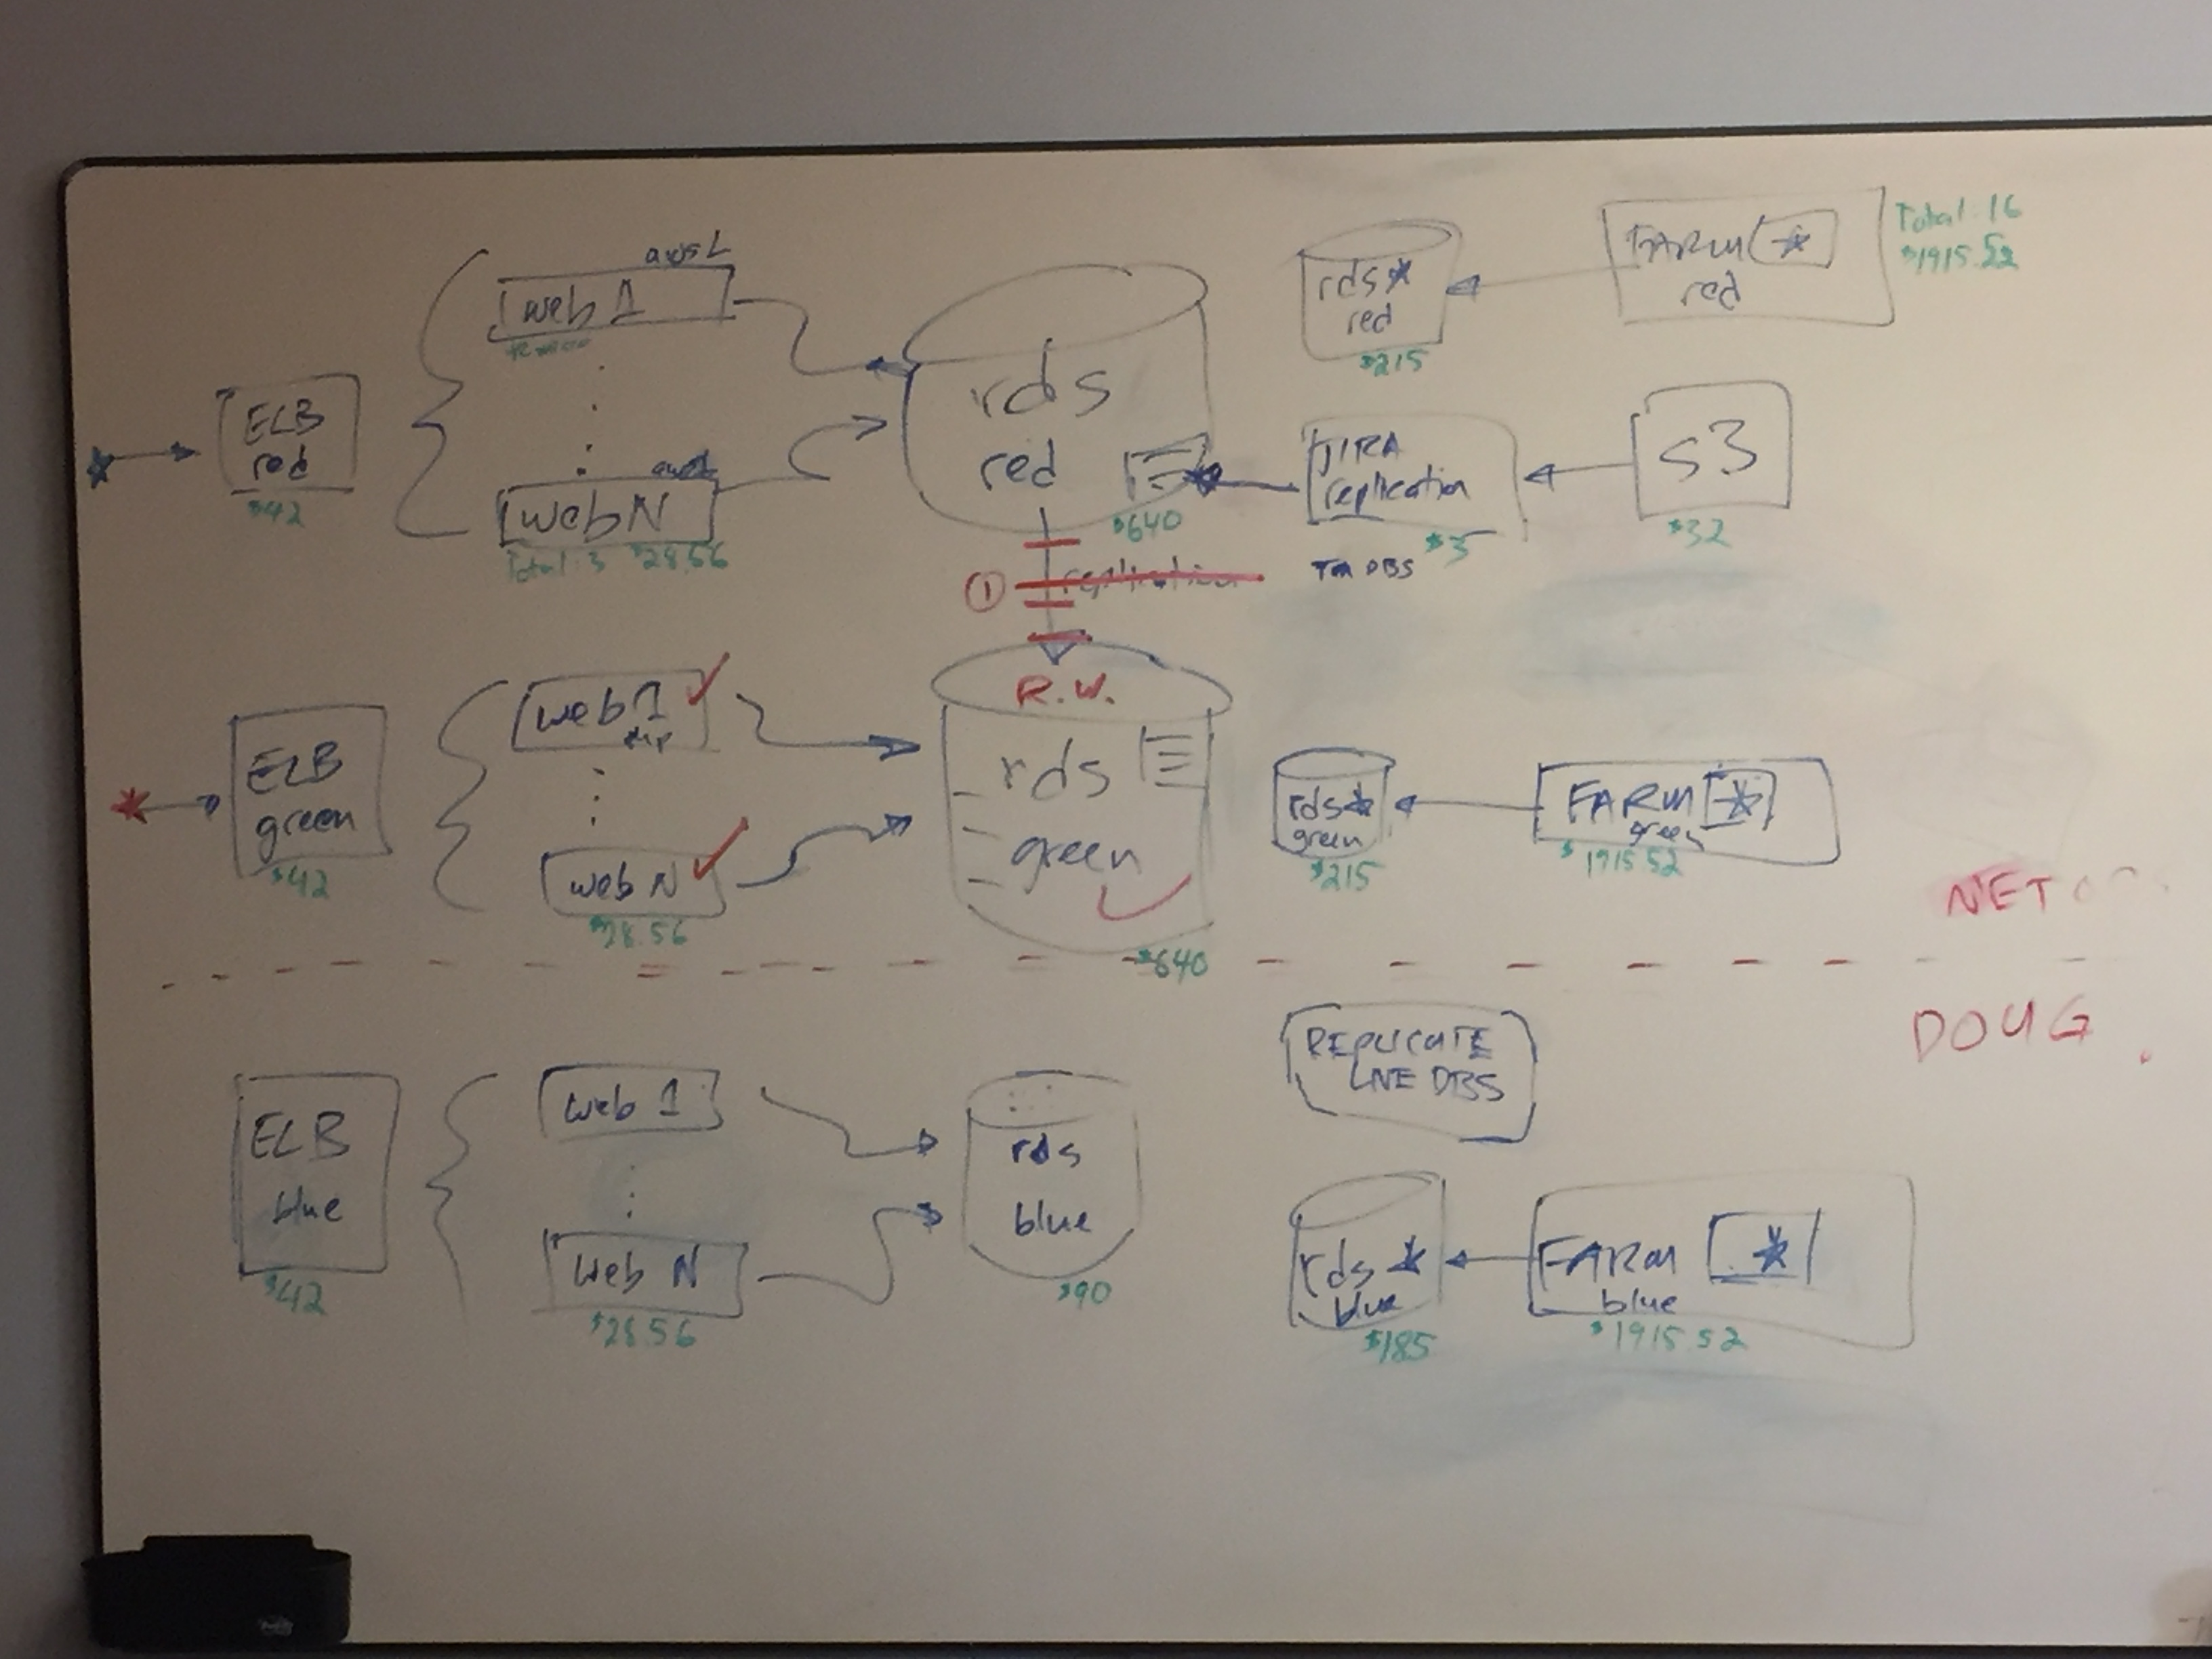 ELB
red
$42
web 1
web N
Total: 3 $28.56
rds
red
$640
rds*
red
$215
FARM *
red
Total 16
$1915.52
JIRA
replication
$3
S3
$32
①
replication
ELB
green
$42
web 1
web N
$28.56
R.W.
rds
green
$640
rds*
green
$215
FARM *
green
$1915.52
NET
DOUG
ELB
blue
$42
web 1
web N
$28.56
rds
blue
$90
REPLICATE
LIVE DBS
rds *
blue
$185
FARM *
blue
$1915.52